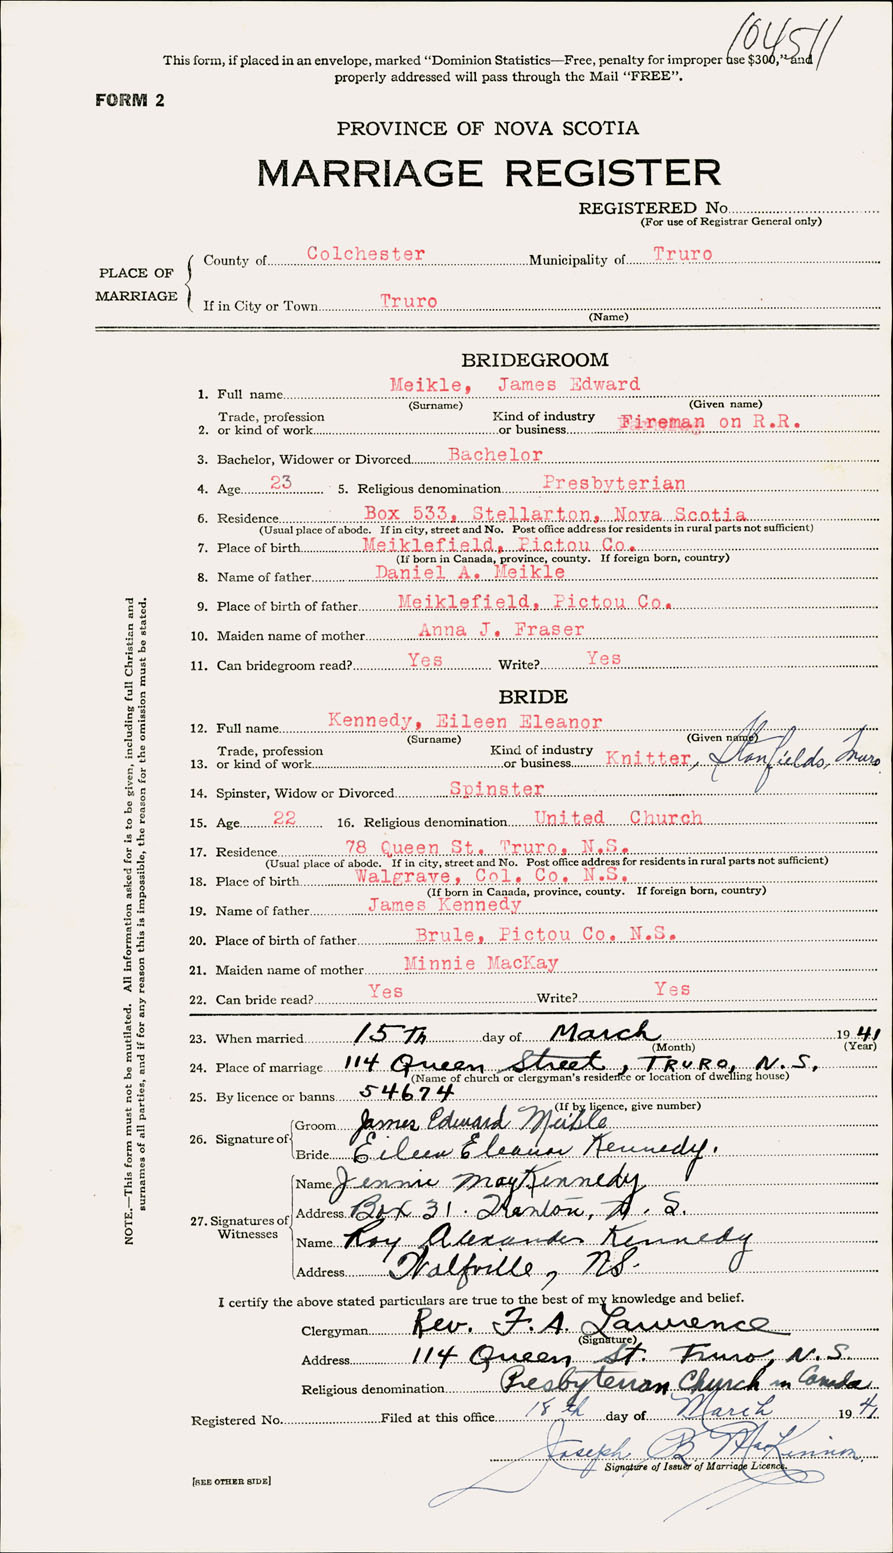 104511
This form, if placed in an envelope, marked "Dominion Statistics—Free, penalty for improper use $300," and
properly addressed will pass through the Mail "FREE".
FORM 2
PROVINCE OF NOVA SCOTIA
MARRIAGE REGISTER
REGISTERED No.
(For use of Registrar General only)
PLACE OF MARRIAGE
County of Colchester Municipality of Truro
If in City or Town Truro
(Name)
BRIDEGROOM
1. Full name Meikle, James Edward
(Surname) (Given name)
Trade, profession Kind of industry
2. or kind of work or business Fireman on R.R.
3. Bachelor, Widower or Divorced Bachelor
4. Age 23 5. Religious denomination Presbyterian
6. Residence Box 533, Stellarton, Nova Scotia
(Usual place of abode. If in city, street and No. Post office address for residents in rural parts not sufficient)
7. Place of birth Meiklefield, Pictou Co.
(If born in Canada, province, county. If foreign born, country)
8. Name of father Daniel A. Meikle
9. Place of birth of father Meiklefield, Pictou Co.
10. Maiden name of mother Anna J. Fraser
11. Can bridegroom read? Yes Write? Yes
BRIDE
12. Full name Kennedy, Eileen Eleanor
(Surname) (Given name)
Trade, profession Kind of industry
13. or kind of work or business Knitter, Stanfields, Truro
14. Spinster, Widow or Divorced Spinster
15. Age 22 16. Religious denomination United Church
17. Residence 78 Queen St. Truro, N.S.
(Usual place of abode. If in city, street and No. Post office address for residents in rural parts not sufficient)
18. Place of birth Walgrave, Col. Co. N.S.
(If born in Canada, province, county. If foreign born, country)
19. Name of father James Kennedy
20. Place of birth of father Brule, Pictou Co. N.S.
21. Maiden name of mother Minnie MacKay
22. Can bride read? Yes Write? Yes
23. When married 15th day of March 1941
(Month) (Year)
24. Place of marriage 114 Queen Street, Truro, N.S.
(Name of church or clergyman's residence or location of dwelling house)
25. By licence or banns 54674
(If by licence, give number)
26. Signature of
Groom James Edward Meikle
Bride Eileen Eleanor Kennedy.
27. Signatures of Witnesses
Name Jennie May Kennedy
Address Box 31. Trenton, N.S.
Name Roy Alexander Kennedy
Address Wolfville, NS.
I certify the above stated particulars are true to the best of my knowledge and belief.
Clergyman Rev. F. A. Lawrence
(Signature)
Address 114 Queen St. Truro, N.S.
Religious denomination Presbyterian Church in Canada
Registered No. Filed at this office 18th day of March 1941
Joseph B MacKinnon
Signature of Issuer of Marriage Licence.
[SEE OTHER SIDE]
NOTE.—This form must not be mutilated. All information asked for is to be given, including full Christian and
surnames of all parties, and if for any reason this is impossible, the reason for the omission must be stated.